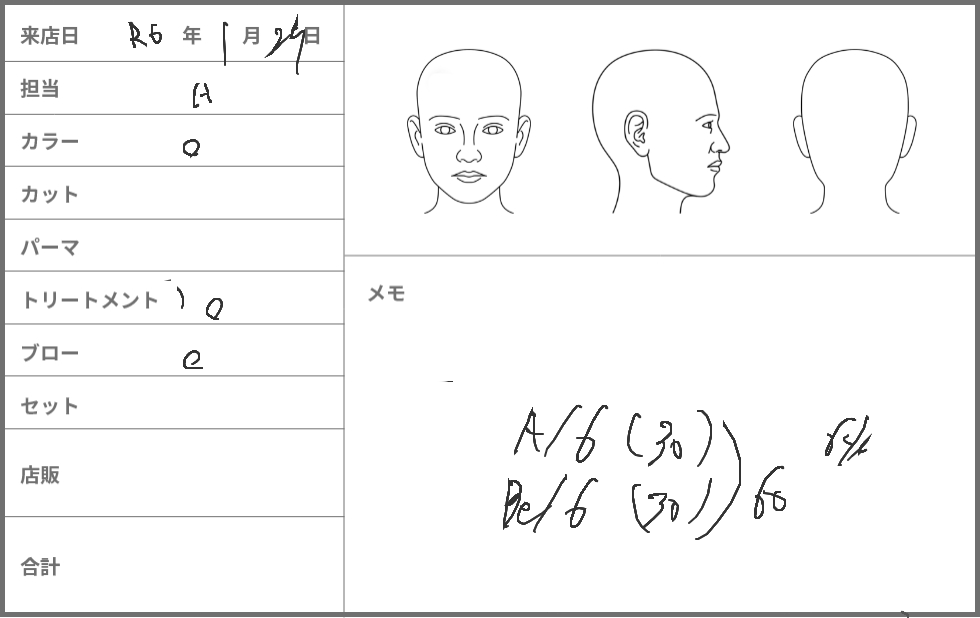 来店日 R6 年 1 月 29 日
担当
カラー ○
カット
パーマ
トリートメント ○
ブロー ○
セット
店販
合計
メモ
A/6 (30)
Be/6 (30) 60